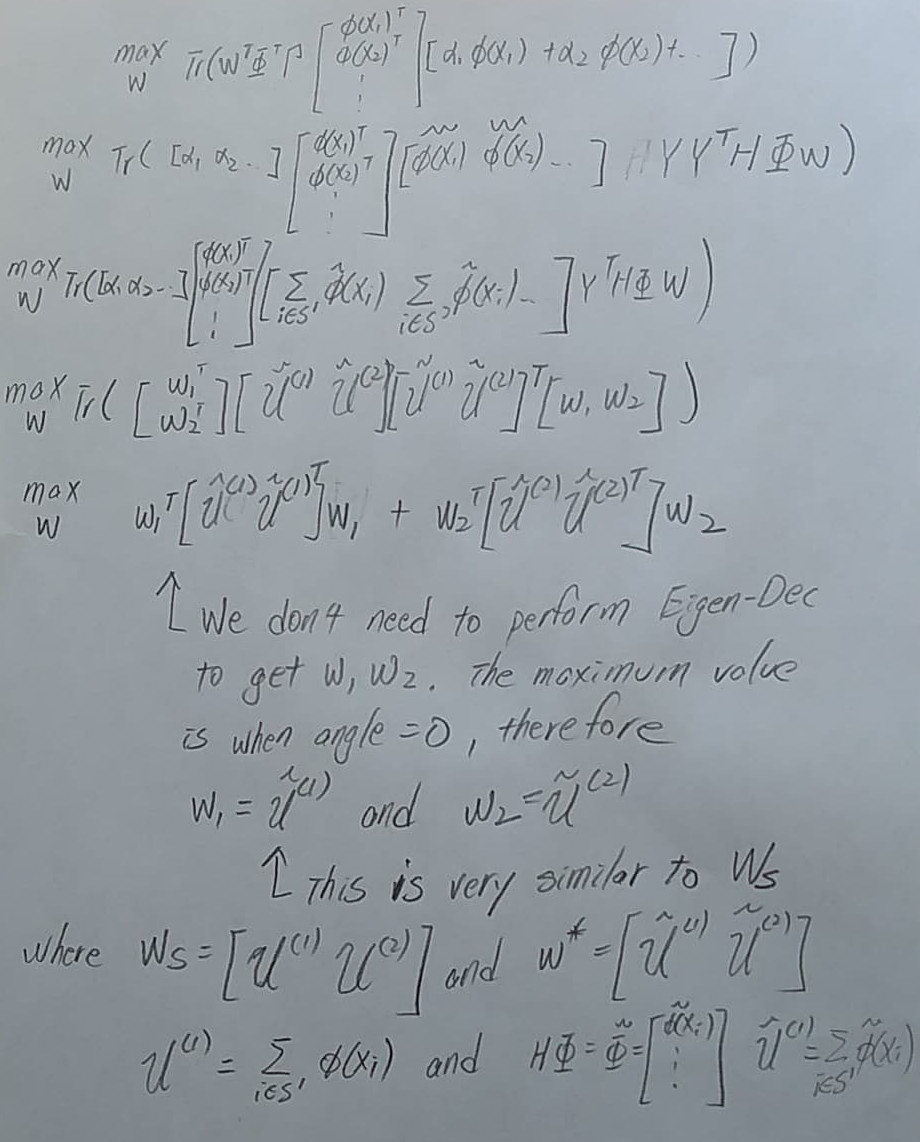 max_W Tr(W^T Φ^T Γ [φ(x₁)^T φ(x₂)^T ⋮][α₁ φ(x₁) + α₂ φ(x₂)+...])
max_W Tr([α₁ α₂ ...][φ(x₁)^T φ(x₂)^T ⋮][φ̃(x₁) φ̃(x₂)...] H Y Y^T H Φ W)
max_W Tr([α₁ α₂ ...][φ(x₁)^T φ(x₂)^T ⋮][Σ_{i∈S¹} φ̃(x_i) Σ_{i∈S²} φ̃(x_i)...] Y^T H Φ W)
max_W Tr([w₁^T w₂^T][ũ^(1) ũ^(2)][ũ^(1) ũ^(2)]^T [w₁ w₂])
max_W w₁^T[ũ^(1) ũ^(1)^T]w₁ + w₂^T[ũ^(2) ũ^(2)^T]w₂
↑ We don't need to perform Eigen-Dec
to get w₁ w₂. The maximum value
is when angle = 0, therefore
w₁ = ũ^(1) and w₂ = ũ^(2)
↑ This is very similar to W_S
where W_S = [u^(1) u^(2)] and w* = [ũ^(1) ũ^(2)]
u^(1) = Σ_{i∈S¹} φ(x_i) and HΦ = Φ̃ = [φ̃(x_i) ⋮] ũ^(1) = Σ_{i∈S¹} φ̃(x_i)